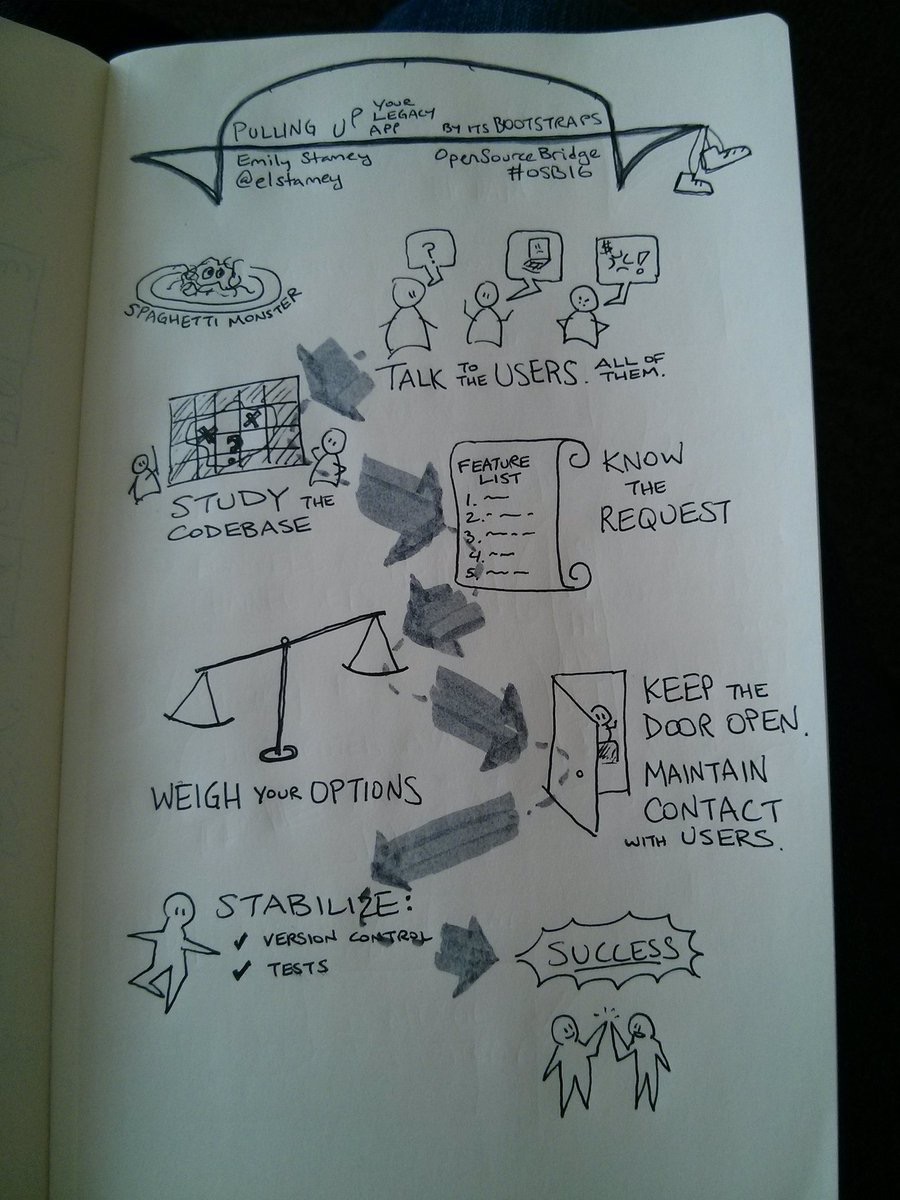 PULLING UP YOUR LEGACY APP BY ITS BOOTSTRAPS
Emily Stamey
@elstamey
OpenSourceBridge
#OSB16
SPAGHETTI MONSTER
?
$ !
TALK TO THE USERS. ALL OF THEM.
X
X
?
STUDY THE
CODEBASE
FEATURE
LIST
1.
2.
3.
4.
5.
KNOW
THE
REQUEST
WEIGH YOUR OPTIONS
KEEP THE
DOOR OPEN.
MAINTAIN
CONTACT
WITH USERS.
STABILIZE:
✓ VERSION CONTROL
✓ TESTS
SUCCESS